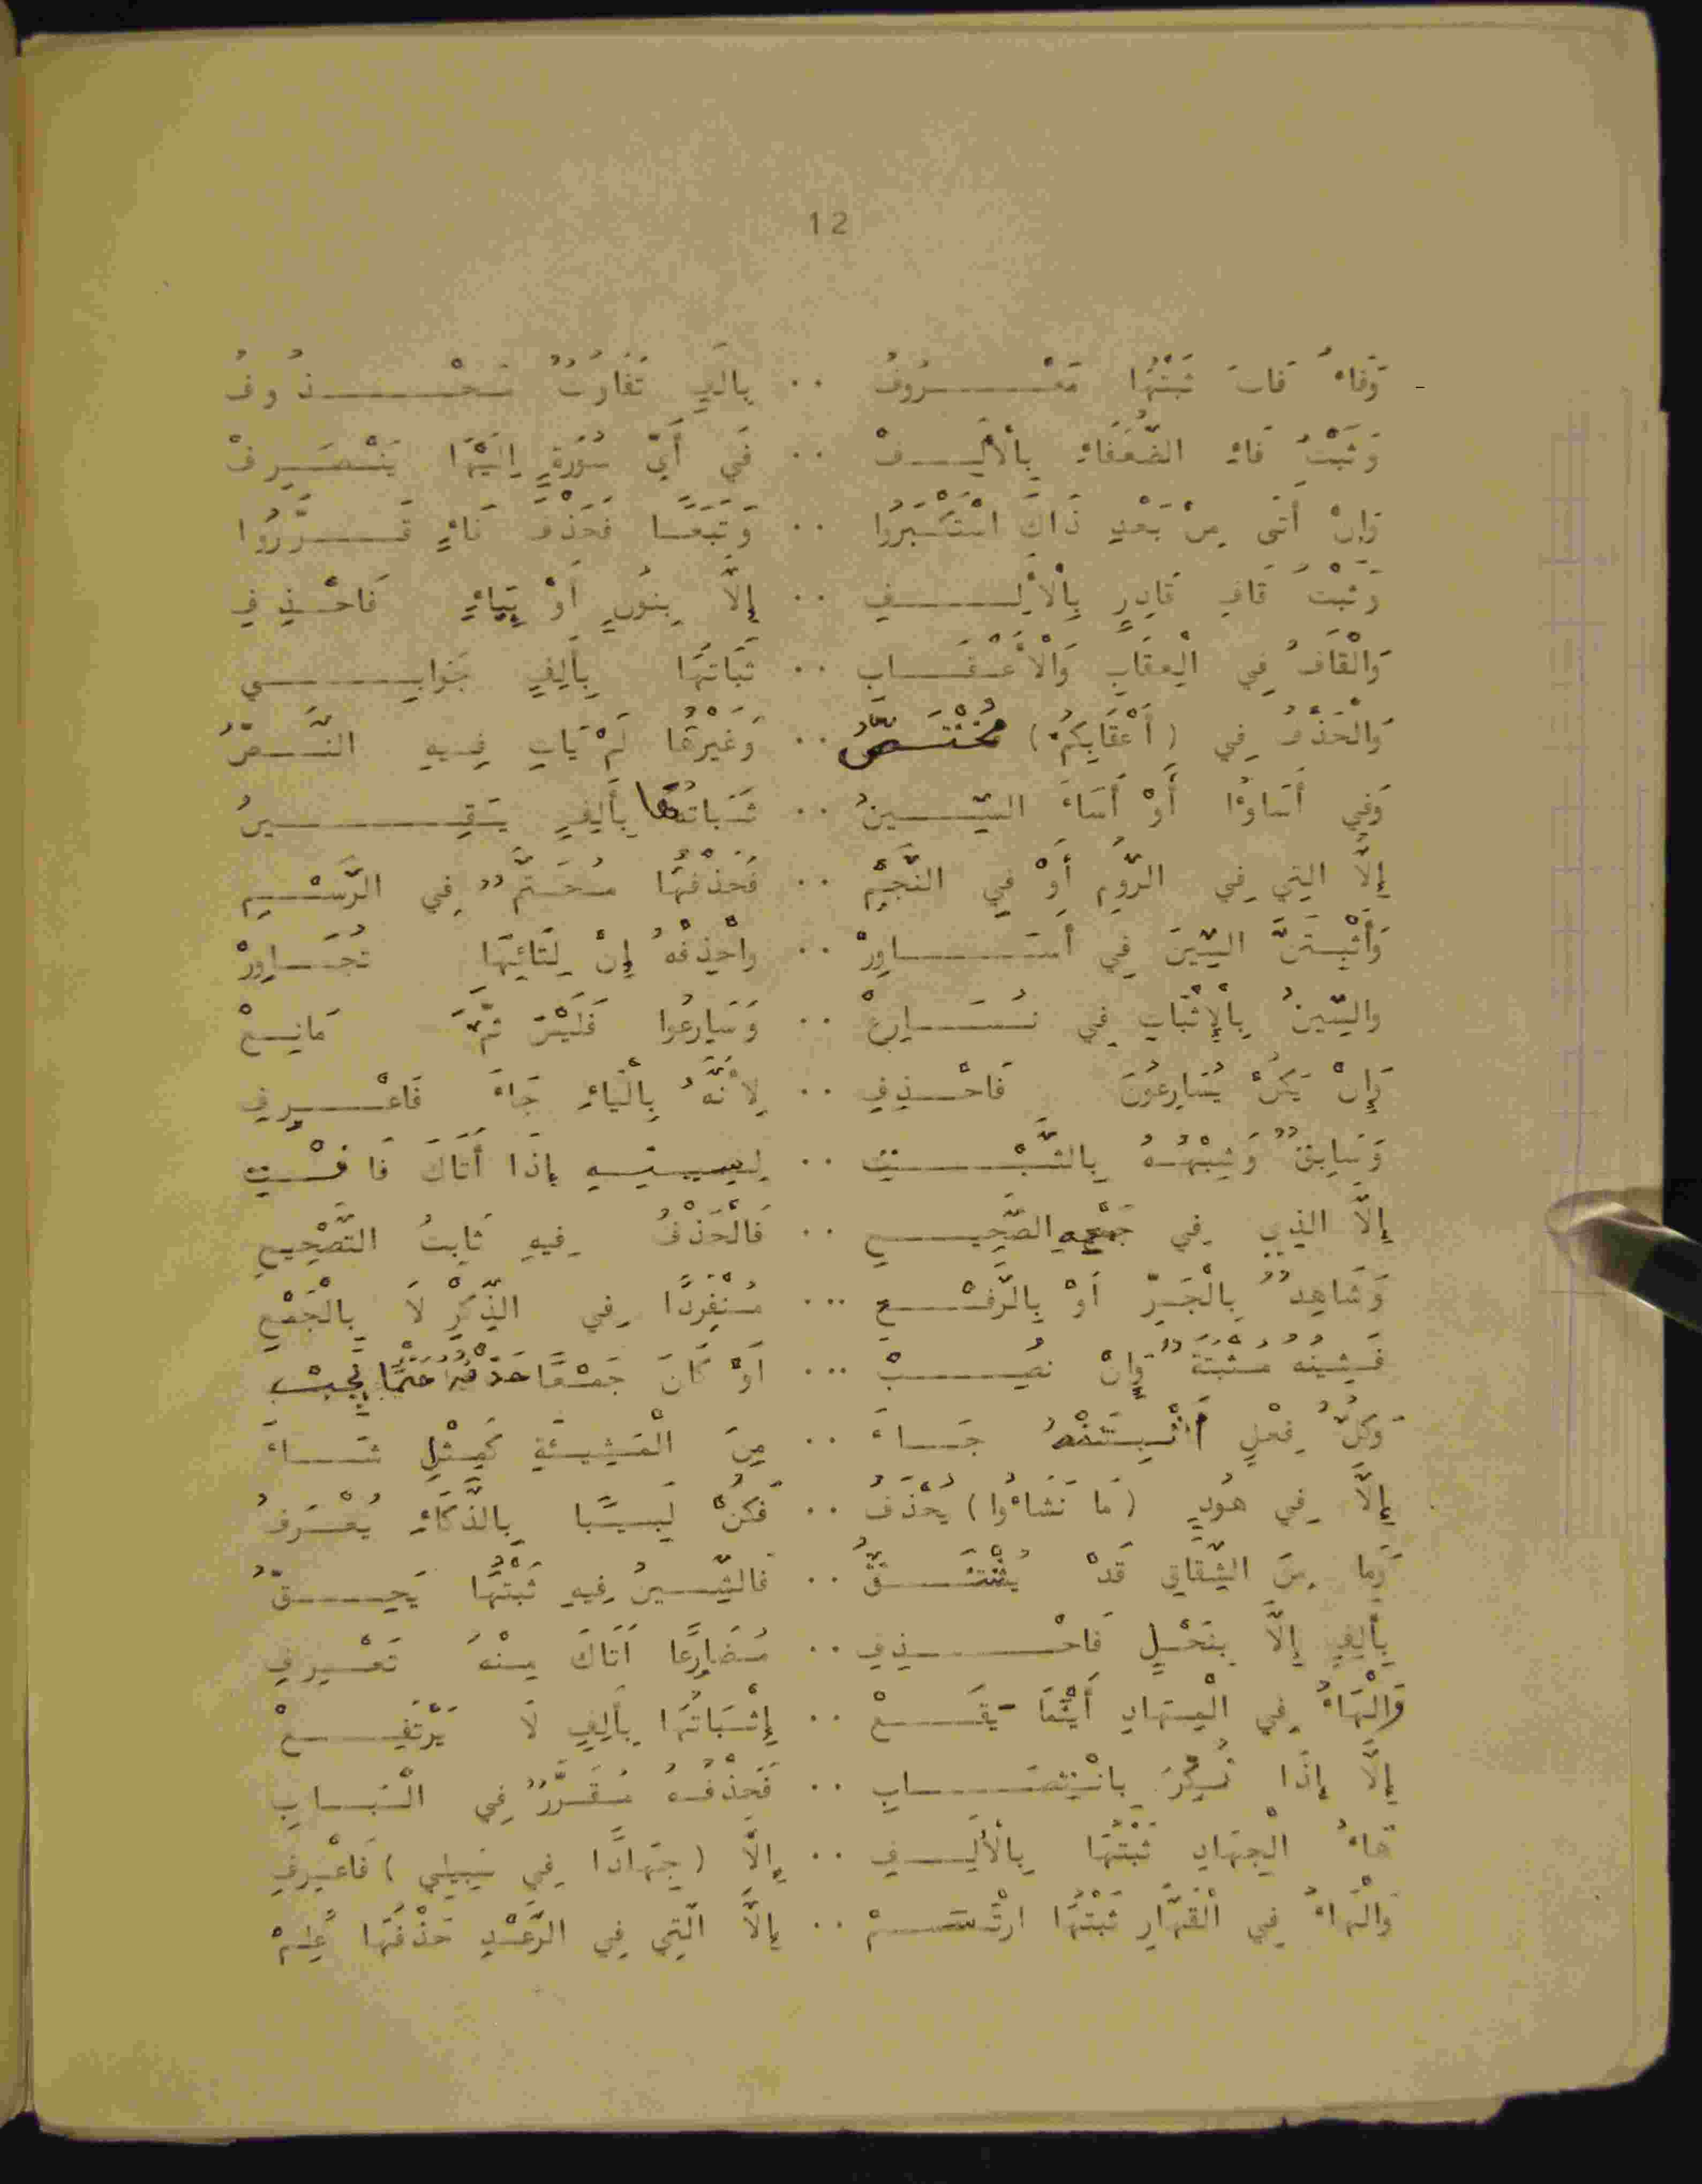 12
وَفَاءُ فَاتَ ثَبْتُهَا مَعْرُوفُ .. بِأَلِفٍ تَفَاوُتٌ مَحْذُوفُ
وَثَبْتُ فَاءِ الضُّعَفَاءِ بِالْأَلِفْ .. فِي أَيِّ سُورَةٍ إِلَيْهَا يَنْصَرِفْ
وَإِنْ أَتَى مِنْ بَعْدِ ذَاكَ اسْتَكْبَرُوا .. وَتَبَعًا فَحَذْفَ فَاءٍ قَرَّرُوا
وَثَبْتُ قَافِ قَادِرٍ بِالْأَلِفِ .. إِلَّا بِنُونٍ أَوْ بِيَاءٍ فَاحْذِفِ
وَالْقَافُ فِي الْعِقَابِ وَالْأَعْقَابِ .. ثَبَاتُهَا بِأَلِفٍ جَوَابِي
وَالْحَذْفُ فِي (أَعْقَابِكُمْ) مُخْتَصُّ .. وَغَيْرُهَا لَمْ يَأْتِ فِيهِ النَّصُّ
وَفِي أَسَاؤُا أَوْ أَسَاءَ السِّينُ .. ثَبَاتُهَا بِأَلِفٍ يَقِينُ
إِلَّا التِي فِي الرُّومِ أَوْ فِي النَّجْمِ .. فَحَذْفُهَا مُحَتَّمٌ فِي الرَّسْمِ
وَأَثْبِتَنَّ السِّينَ فِي أَسَاوِرْ .. وَاحْذِفْهُ إِنْ لِتَائِهَا تُجَاوِرْ
وَالسِّينُ بِالْإِثْبَاتِ فِي نُسَارِعْ .. وَسَارِعُوا فَلَيْسَ ثَمَّ مَانِعْ
وَإِنْ يَكُنْ يُسَارِعُونَ فَاحْذِفِ .. لِأَنَّهُ بِالْيَاءِ جَاءَ فَاعْرِفِ
وَسَابِقٌ وَشِبْهُهُ بِالثَّبْتِ .. لِسِينِهِ إِذَا أَتَاكَ فَافْتِ
إِلَّا الذِي فِي جَمْعِهِ الصَّحِيحِ .. فَالْحَذْفُ فِيهِ ثَابِتُ التَّصْحِيحِ
وَشَاهِدٌ بِالْجَرِّ أَوْ بِالرَّفْعِ ... مُنْفَرِدًا فِي الذِّكْرِ لَا بِالْجَمْعِ
فَشِينُهُ مُثْبَتَةٌ وَإِنْ نُصِبْ ... أَوْ كَانَ جَمْعًا حَذْفُهُ حَتْمًا يَجِبْ
وَكُلُّ فِعْلٍ أَثْبِتَنْهُ جَاءَ .. مِنَ الْمَشِيئَةِ كَمِثْلِ شَاءَ
إِلَّا فِي هُودٍ (مَا نَشَاءُوا) يُحْذَفُ .. فَكُنْ لَبِيبًا بِالذَّكَاءِ يُعْرَفُ
وَمَا مِنَ الشِّقَاقِ قَدْ يُشْتَقُّ .. فَالشِّينُ فِيهِ ثَبْتُهَا يَحِقُّ
بِأَلِفٍ إِلَّا بِنَحْلٍ فَاحْذِفِ .. مُضَارِعًا أَتَاكَ مِنْهُ تَعْرِفِ
وَالْهَاءُ فِي الْمِهَادِ أَيْنَمَا يَقَعْ .. إِثْبَاتُهَا بِأَلِفٍ لَا يَرْتَفِعْ
إِلَّا إِذَا نُكِّرَ بِانْتِصَابِ .. فَحَذْفُهُ مُقَرَّرٌ فِي الْبَابِ
هَاءُ الْجِهَادِ ثَبْتُهَا بِالْأَلِفِ .. إِلَّا (جِهَادًا فِي سَبِيلِي) فَاعْرِفِ
وَالْهَاءُ فِي الْقَهَّارِ ثَبْتُهَا ارْتَسَمْ .. إِلَّا الَّتِي فِي الرَّعْدِ حَذْفُهَا عُلِمْ